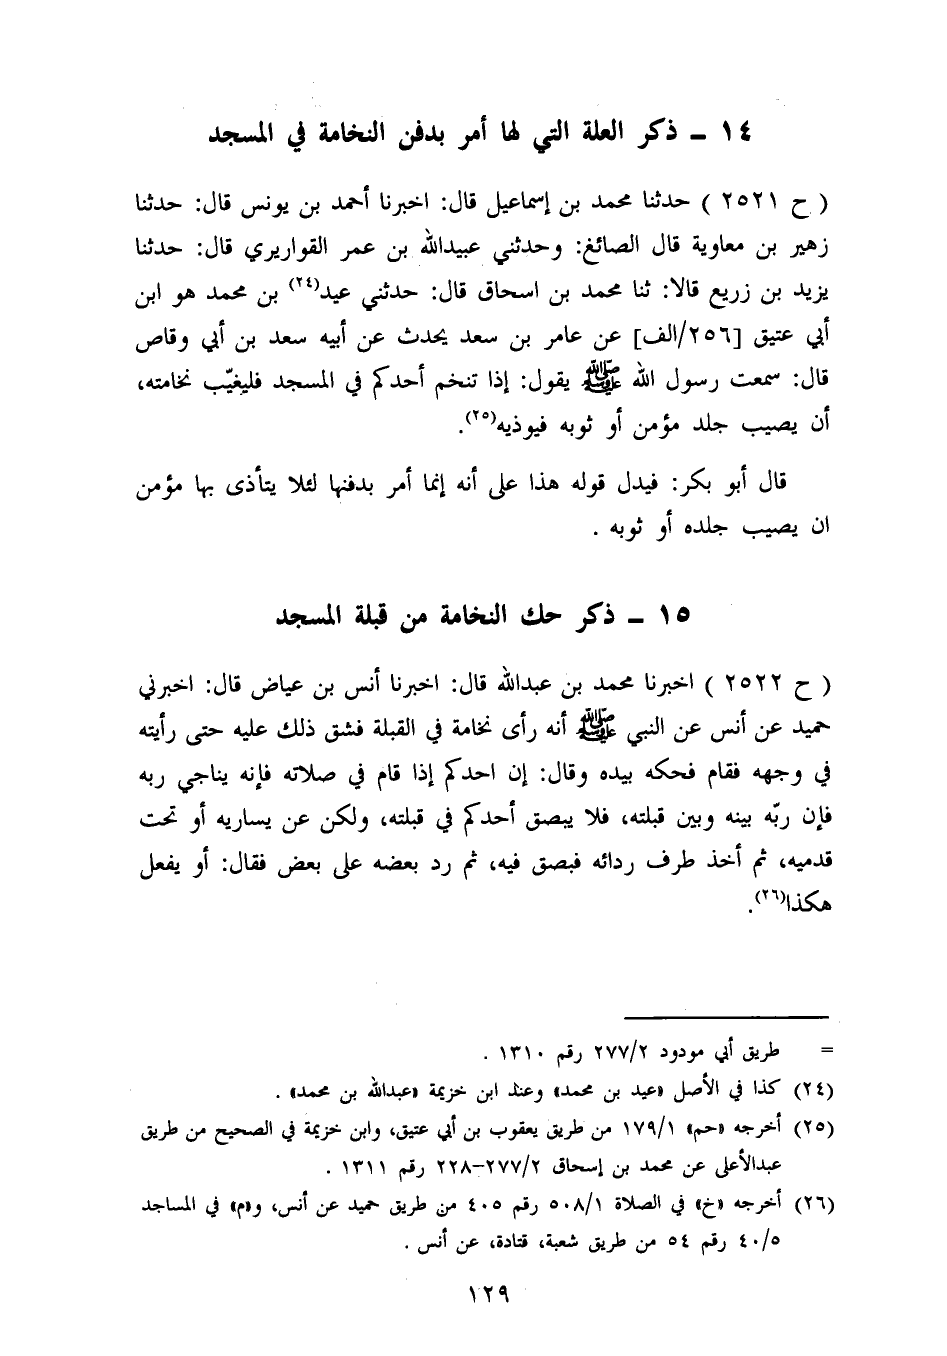 ١٤ ـ ذكر العلة التي لها أمر بدفن النخامة في المسجد
( ح ٢٥٢١ ) حدثنا محمد بن إسماعيل قال: اخبرنا أحمد بن يونس قال: حدثنا
زهير بن معاوية قال الصائغ: وحدثني عبيدالله بن عمر القواريري قال: حدثنا
يزيد بن زريع قالا: ثنا محمد بن اسحاق قال: حدثني عيد(٢٤) بن محمد هو ابن
أبي عتيق [٢٥٦/الف] عن عامر بن سعد يحدث عن أبيه سعد بن أبي وقاص
قال: سمعت رسول الله ﷺ يقول: إذا تنخم أحدكم في المسجد فليغيّب نخامته،
أن يصيب جلد مؤمن أو ثوبه فيوذيه(٢٥).
قال أبو بكر: فيدل قوله هذا على أنه إنما أمر بدفنها لئلا يتأذى بها مؤمن
ان يصيب جلده أو ثوبه .
١٥ ـ ذكر حك النخامة من قبلة المسجد
( ح ٢٥٢٢ ) اخبرنا محمد بن عبدالله قال: اخبرنا أنس بن عياض قال: اخبرني
حميد عن أنس عن النبي ﷺ أنه رأى نخامة في القبلة فشق ذلك عليه حتى رأيته
في وجهه فقام فحكه بيده وقال: إن احدكم إذا قام في صلاته فإنه يناجي ربه
فإن ربّه بينه وبين قبلته، فلا يبصق أحدكم في قبلته، ولكن عن يساريه أو تحت
قدميه، ثم أخذ طرف ردائه فبصق فيه، ثم رد بعضه على بعض فقال: أو يفعل
هكذا(٢٦).
= طريق أبي مودود ٢٧٧/٢ رقم ١٣١٠ .
(٢٤) كذا في الأصل «عيد بن محمد» وعند ابن خزيمة «عبدالله بن محمد» .
(٢٥) أخرجه «حم» ١٧٩/١ من طريق يعقوب بن أبي عتيق، وابن خزيمة في الصحيح من طريق
عبدالأعلى عن محمد بن إسحاق ٢٧٧/٢-٢٢٨ رقم ١٣١١ .
(٢٦) أخرجه «خ» في الصلاة ٥٠٨/١ رقم ٤٠٥ من طريق حميد عن أنس، و«م» في المساجد
٤٠/٥ رقم ٥٤ من طريق شعبة، قتادة، عن أنس .
١٢٩